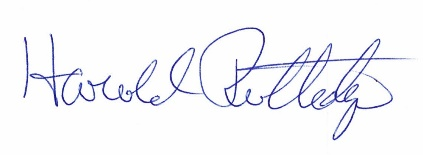 Harold Rutledge